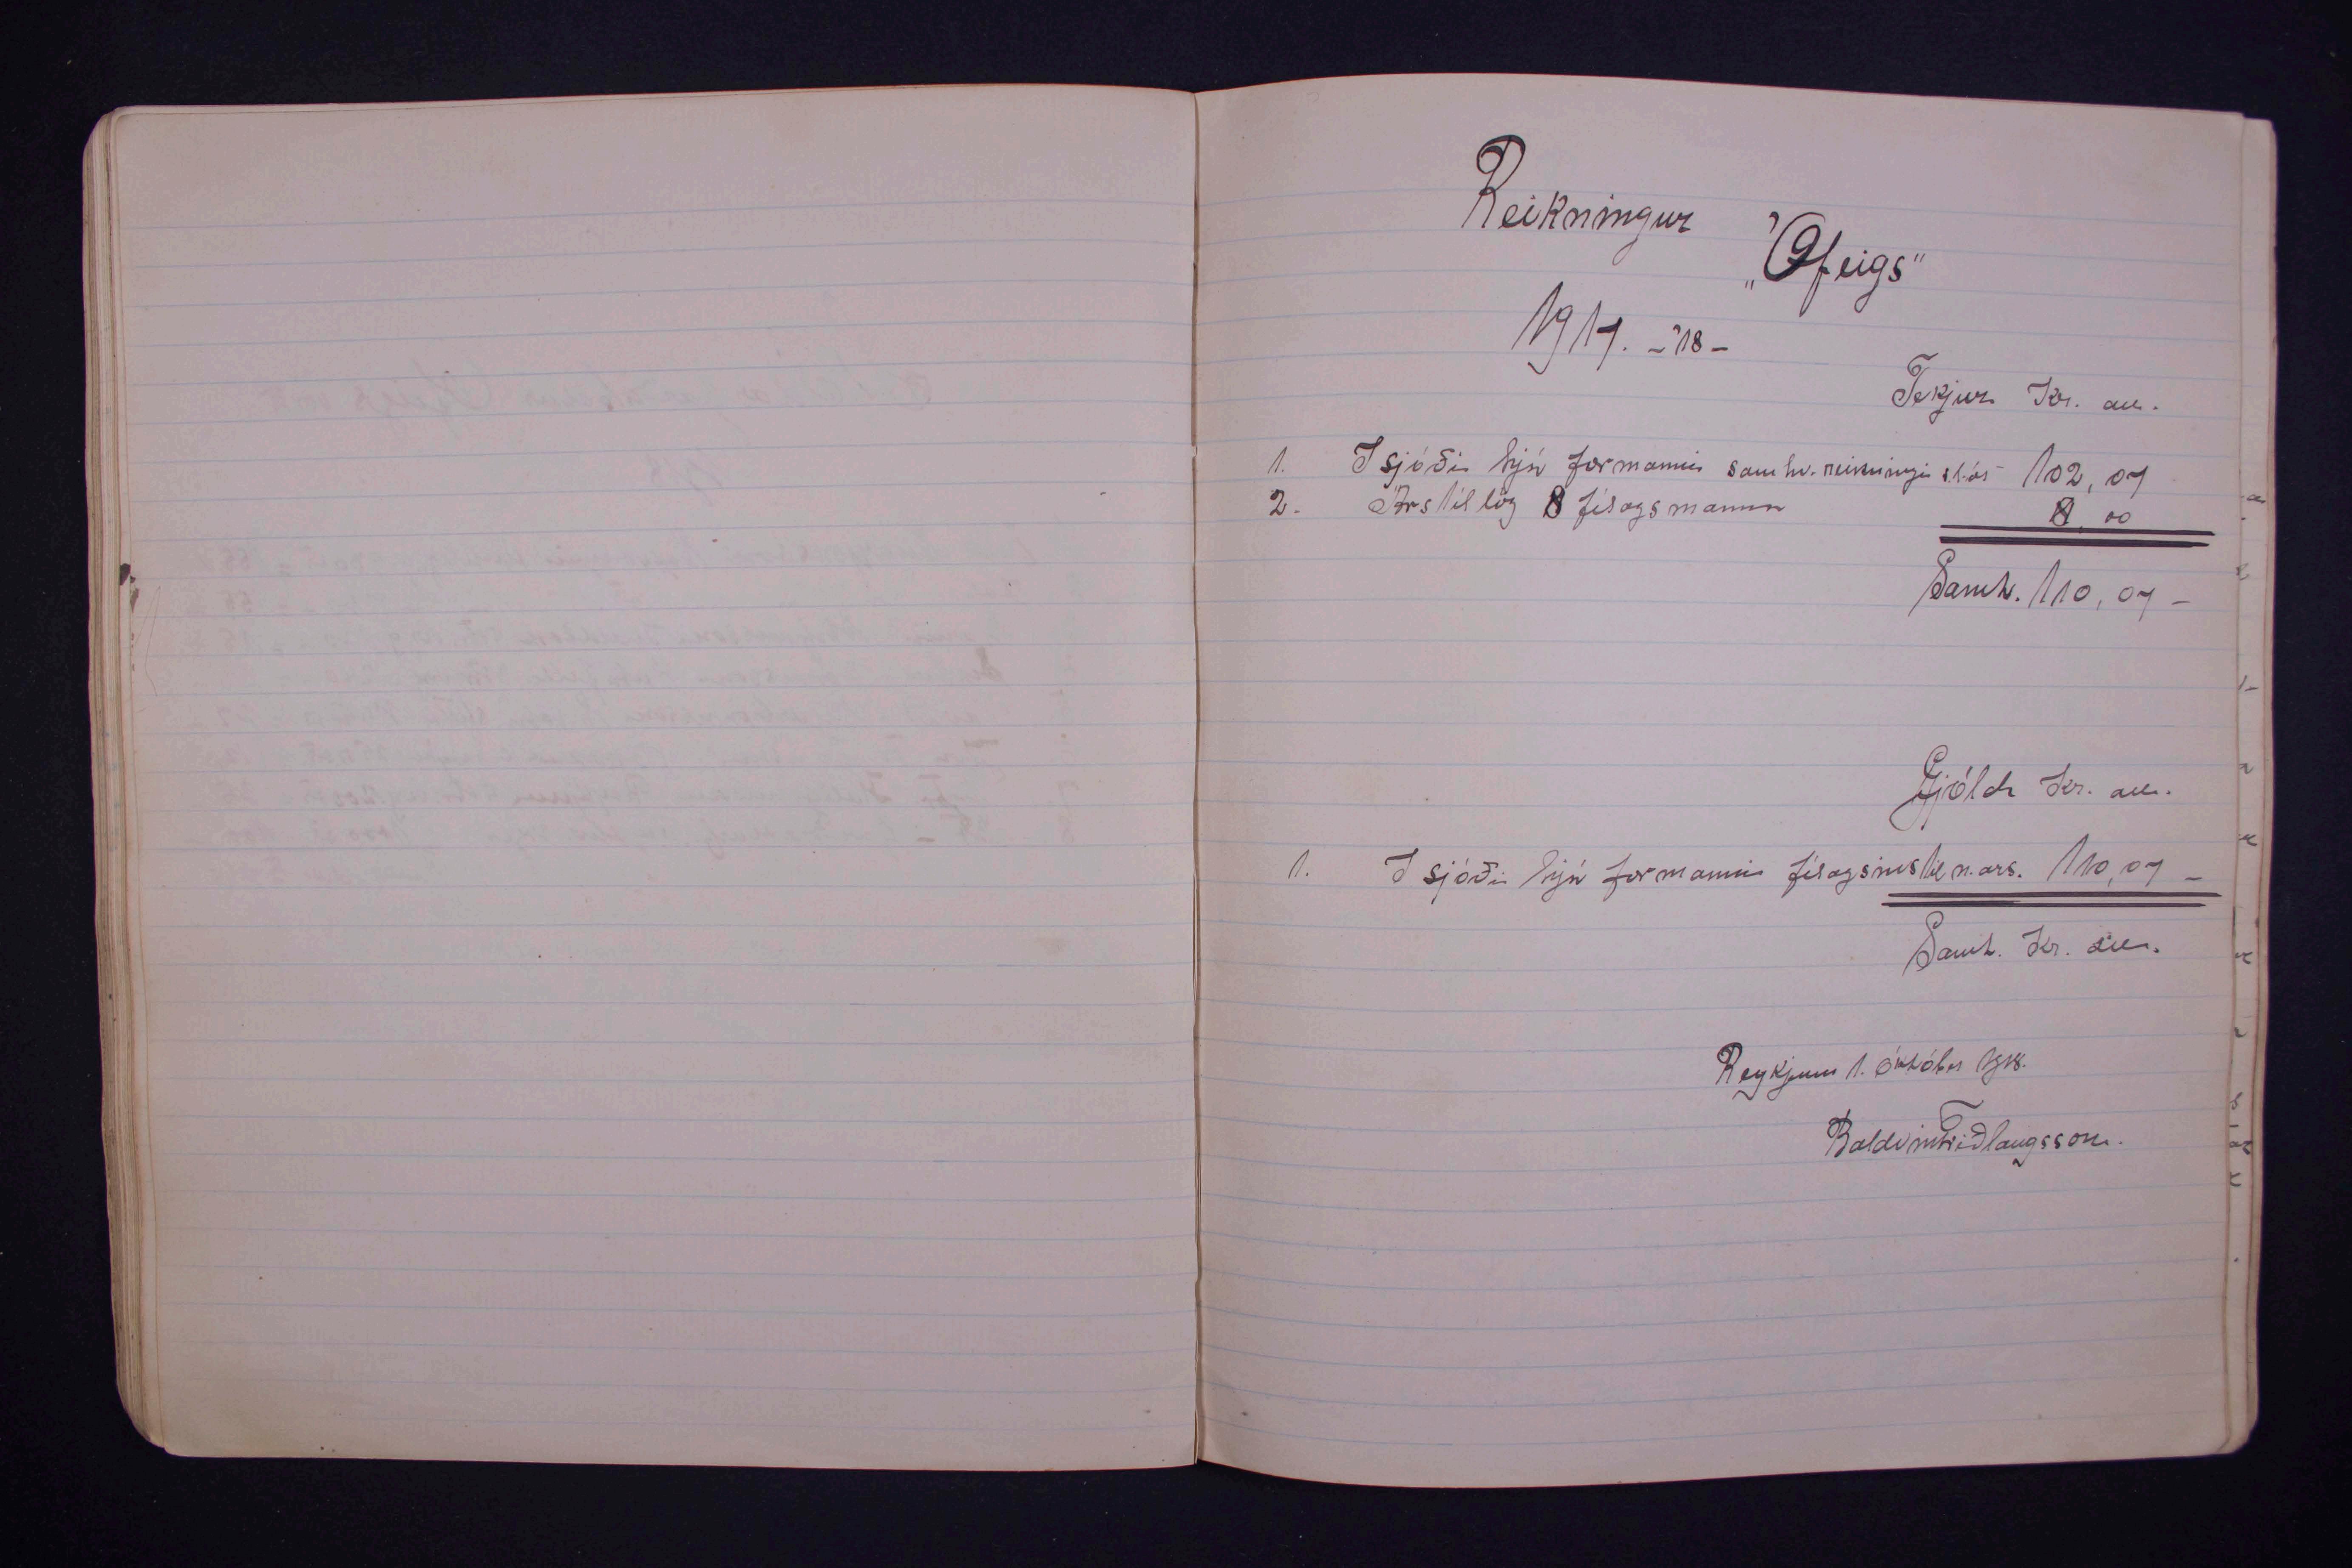 Reikningur
„Ófeigs"
1917. - '18 -
Tekjur Kr. au.
1. Í sjóði hjá formanni samhv. reikningi s.l. ás 102,07
2. Árstillög 8 félagsmanna 8,00
Samt. 110,07 -
Gjöld Kr. au.
1. Í sjóði hjá formanni félagsins til n. árs. 110,07 -
Samt. Kr. au.
Reykjum 1. október 1918.
Baldvin Friðlaugsson.